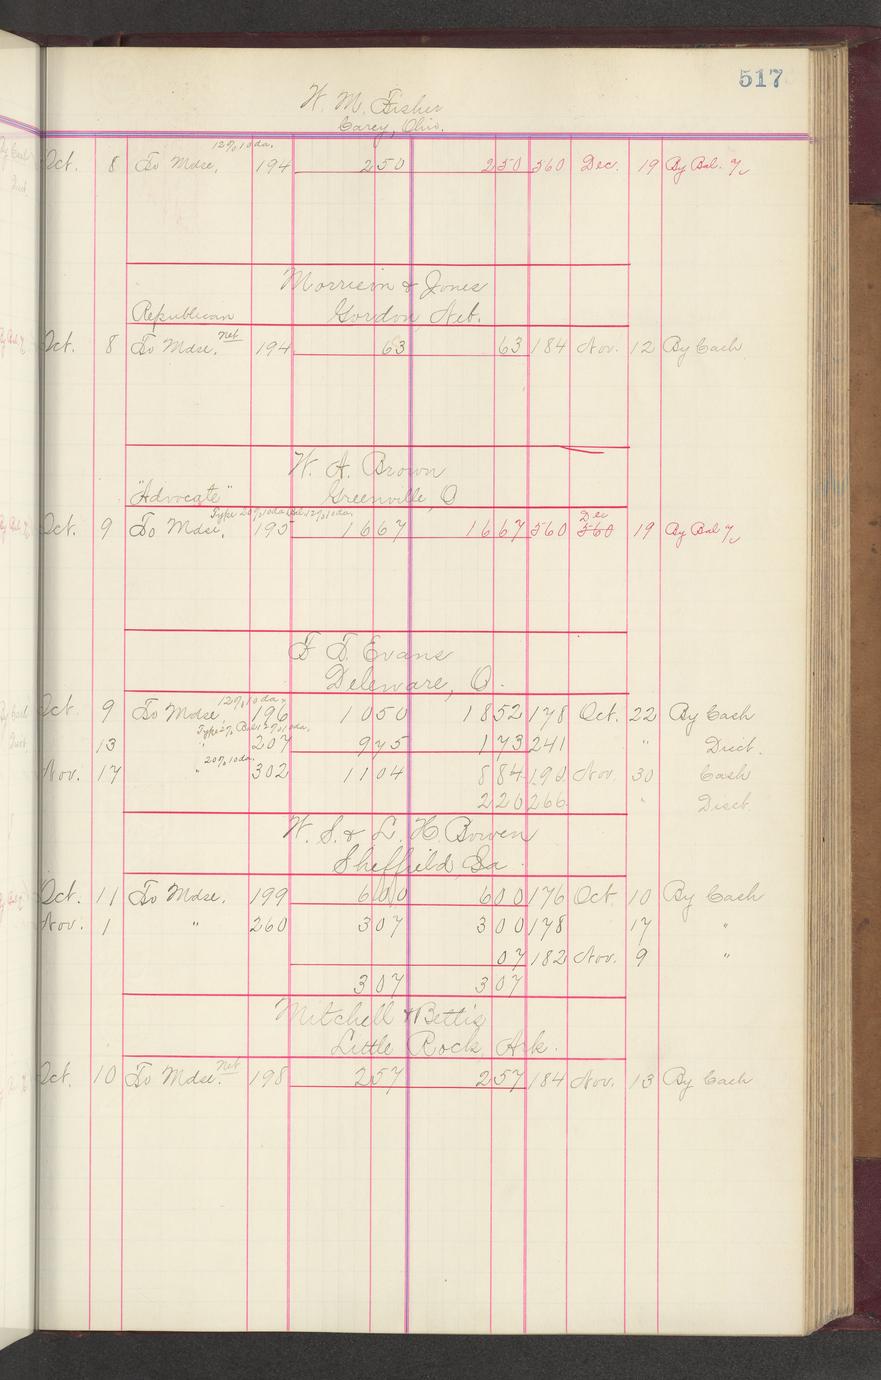 517
W. M. Fisher
Carey, Ohio.
12%10da.
Oct. 8 To Mdse. 194 250 250 560 Dec. 19 By Bal. %
Morrison & Jones
Republican Gordon Neb.
Oct. 8 To Mdse. Net 194 63 63 184 Nov. 12 By Cash
W. A. Brown
"Advocate" Greenville, O
Type 20%10da Bal. 12%10da.
Oct. 9 To Mdse. 195 1667 1667 560 Dec 560 19 By Bal %
F. T. Evans
Deleware, O.
12%10da.
Oct. 9 To Mdse 196 1050 1852 178 Oct. 22 By Cash
Type 2% Bal 12%10da.
13 " 207 975 173 241 " Disct.
20%10da.
Nov. 17 " 302 1104 884 190 Nov. 30 Cash
220 266 " Disct.
W. S. & L. H. Bowen
Sheffield, Ga.
Oct. 11 To Mdse. 199 600 600 176 Oct. 10 By Cash
Nov. 1 " 260 307 300 178 17 "
07 182 Nov. 9 "
307 307
Mitchell & Bettis
Little Rock, Ark.
Oct. 10 To Mdse. Net 198 257 257 184 Nov. 13 By Cash